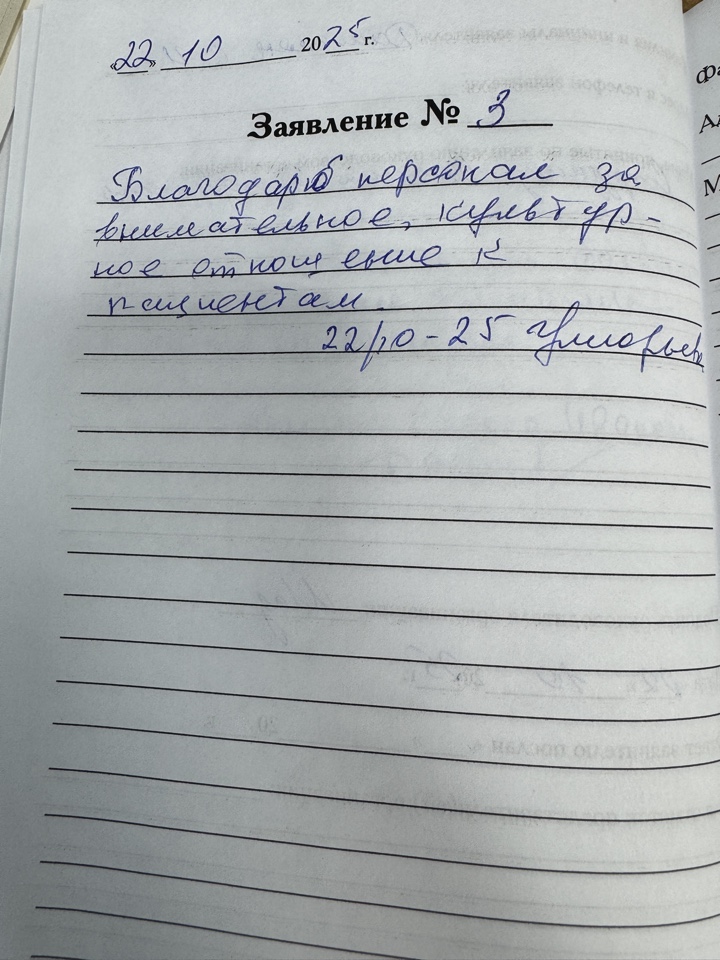 «22» 10 2025 г.
Заявление № 3
Благодарю персонал за
внимательное, культур-
ное отношение к
пациентам.
22/10-25